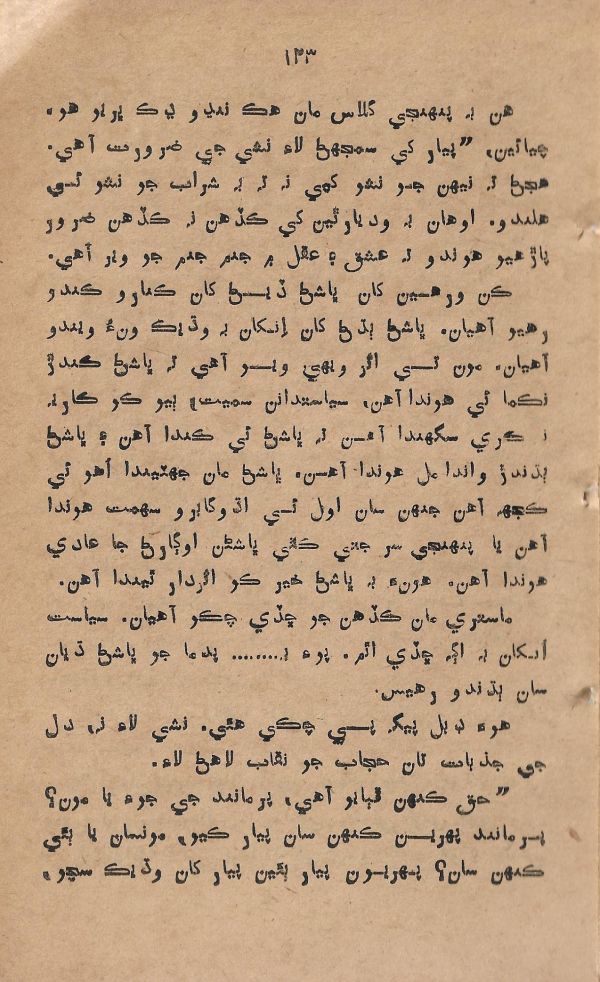 ۱۲۳
هن بہ پنهنجي گلاس مان هڪ ننڍو ڍڪ ڀريو هو،
چيائين، ”پيار کي سمجهڻ لاءِ نشي جي ضرورت آهي.
هجڻ تہ نيهن جو نشو کپي نہ تہ بہ شراب جو نشو ئي
هلندو. اوهان بہ وديارٿين کي ڪڏهن نہ ڪڏهن ضرور
پاڙهيو هوندو تہ عشق ۽ عقل ۾ جنم جنم جو وير آهي.
ڪن ورهين کان ڀاشڻ ڏيڻ کان ڪنارو ڪندو
رهيو آهيان. ڀاشڻ ٻڌڻ کان اِنکان بہ وڌيڪ ونءُ ويندو
آهيان. مون ئي اڳر ويهي ويو آهي تہ ڀاشڻ ڪندڙ
نڪما ئي هوندا آهن، سياستدانن سميت، ٻيو ڪو ڪاريہ
نہ ڪري سگهندا آهن تہ ڀاشڻ ئي ڪندا آهن ۽ ڀاشڻ
ٻڌندڙ واندا مل هوندا آهن. ڀاشڻ مان جهٽيندا اُهو ئي
ڪجهہ آهن جنهن سان اول ئي اڌوگابرو سهمت هوندا
آهن يا پنهنجي سر جتي ڪٿي ڀاشڻن اوڳارڻ جا عادي
هوندا آهن. هونءَ بہ ڀاشڻ خير ڪو اثردار ٿيندا آهن.
ماستري مان ڪڏهن جو ڇڏي چڪو آهيان. سياست
اُنکان بہ اڳہ ڇڏي اٿم. پوءِ بہ......... پدما جو ڀاشڻ ڌيان
سان ٻڌندو رهيس.
هوءَ ڊبل پيگہ پي چڪي هئي. نشي لاءِ نہ، دل
جي جذبات تان حجاب جو نقاب لاهڻ لاءِ.
”حق ڪنهن ڦٻايو آهي، پرمانند جي جوءِ يا مون؟
پرمانند پهرين ڪنهن سان پيار ڪيو، مونسان يا ٻئي
ڪنهن سان؟ پهريون پيار ٻئين پيار کان وڌيڪ سچو،